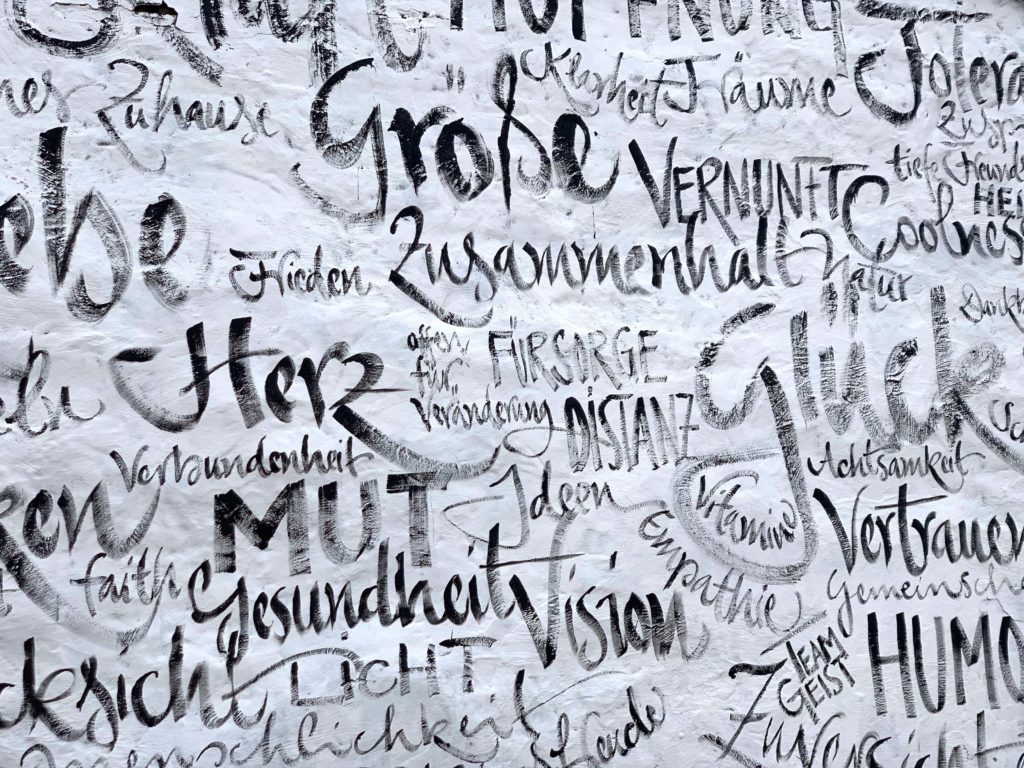 HOFFNUNG
Zuhause
Größe
Klarheit
Träume
Tolera
VERNUNFT
tiefe Freunds
HEI
Coolness
Frieden
Zusammenhalt
Natur
Dankb
Herz
offen
für
Veränderung
FÜRSORGE
DISTANZ
Glück
Verbundenheit
Achtsamkeit
ken
MUT
Ideen
Vitamine
Vertrauen
faith
Gesundheit
Vision
Empathie
Gemeinscha
cksicht
LICHT
TEAM
GEIST
HUMO
Menschlichkeit
Zuversicht